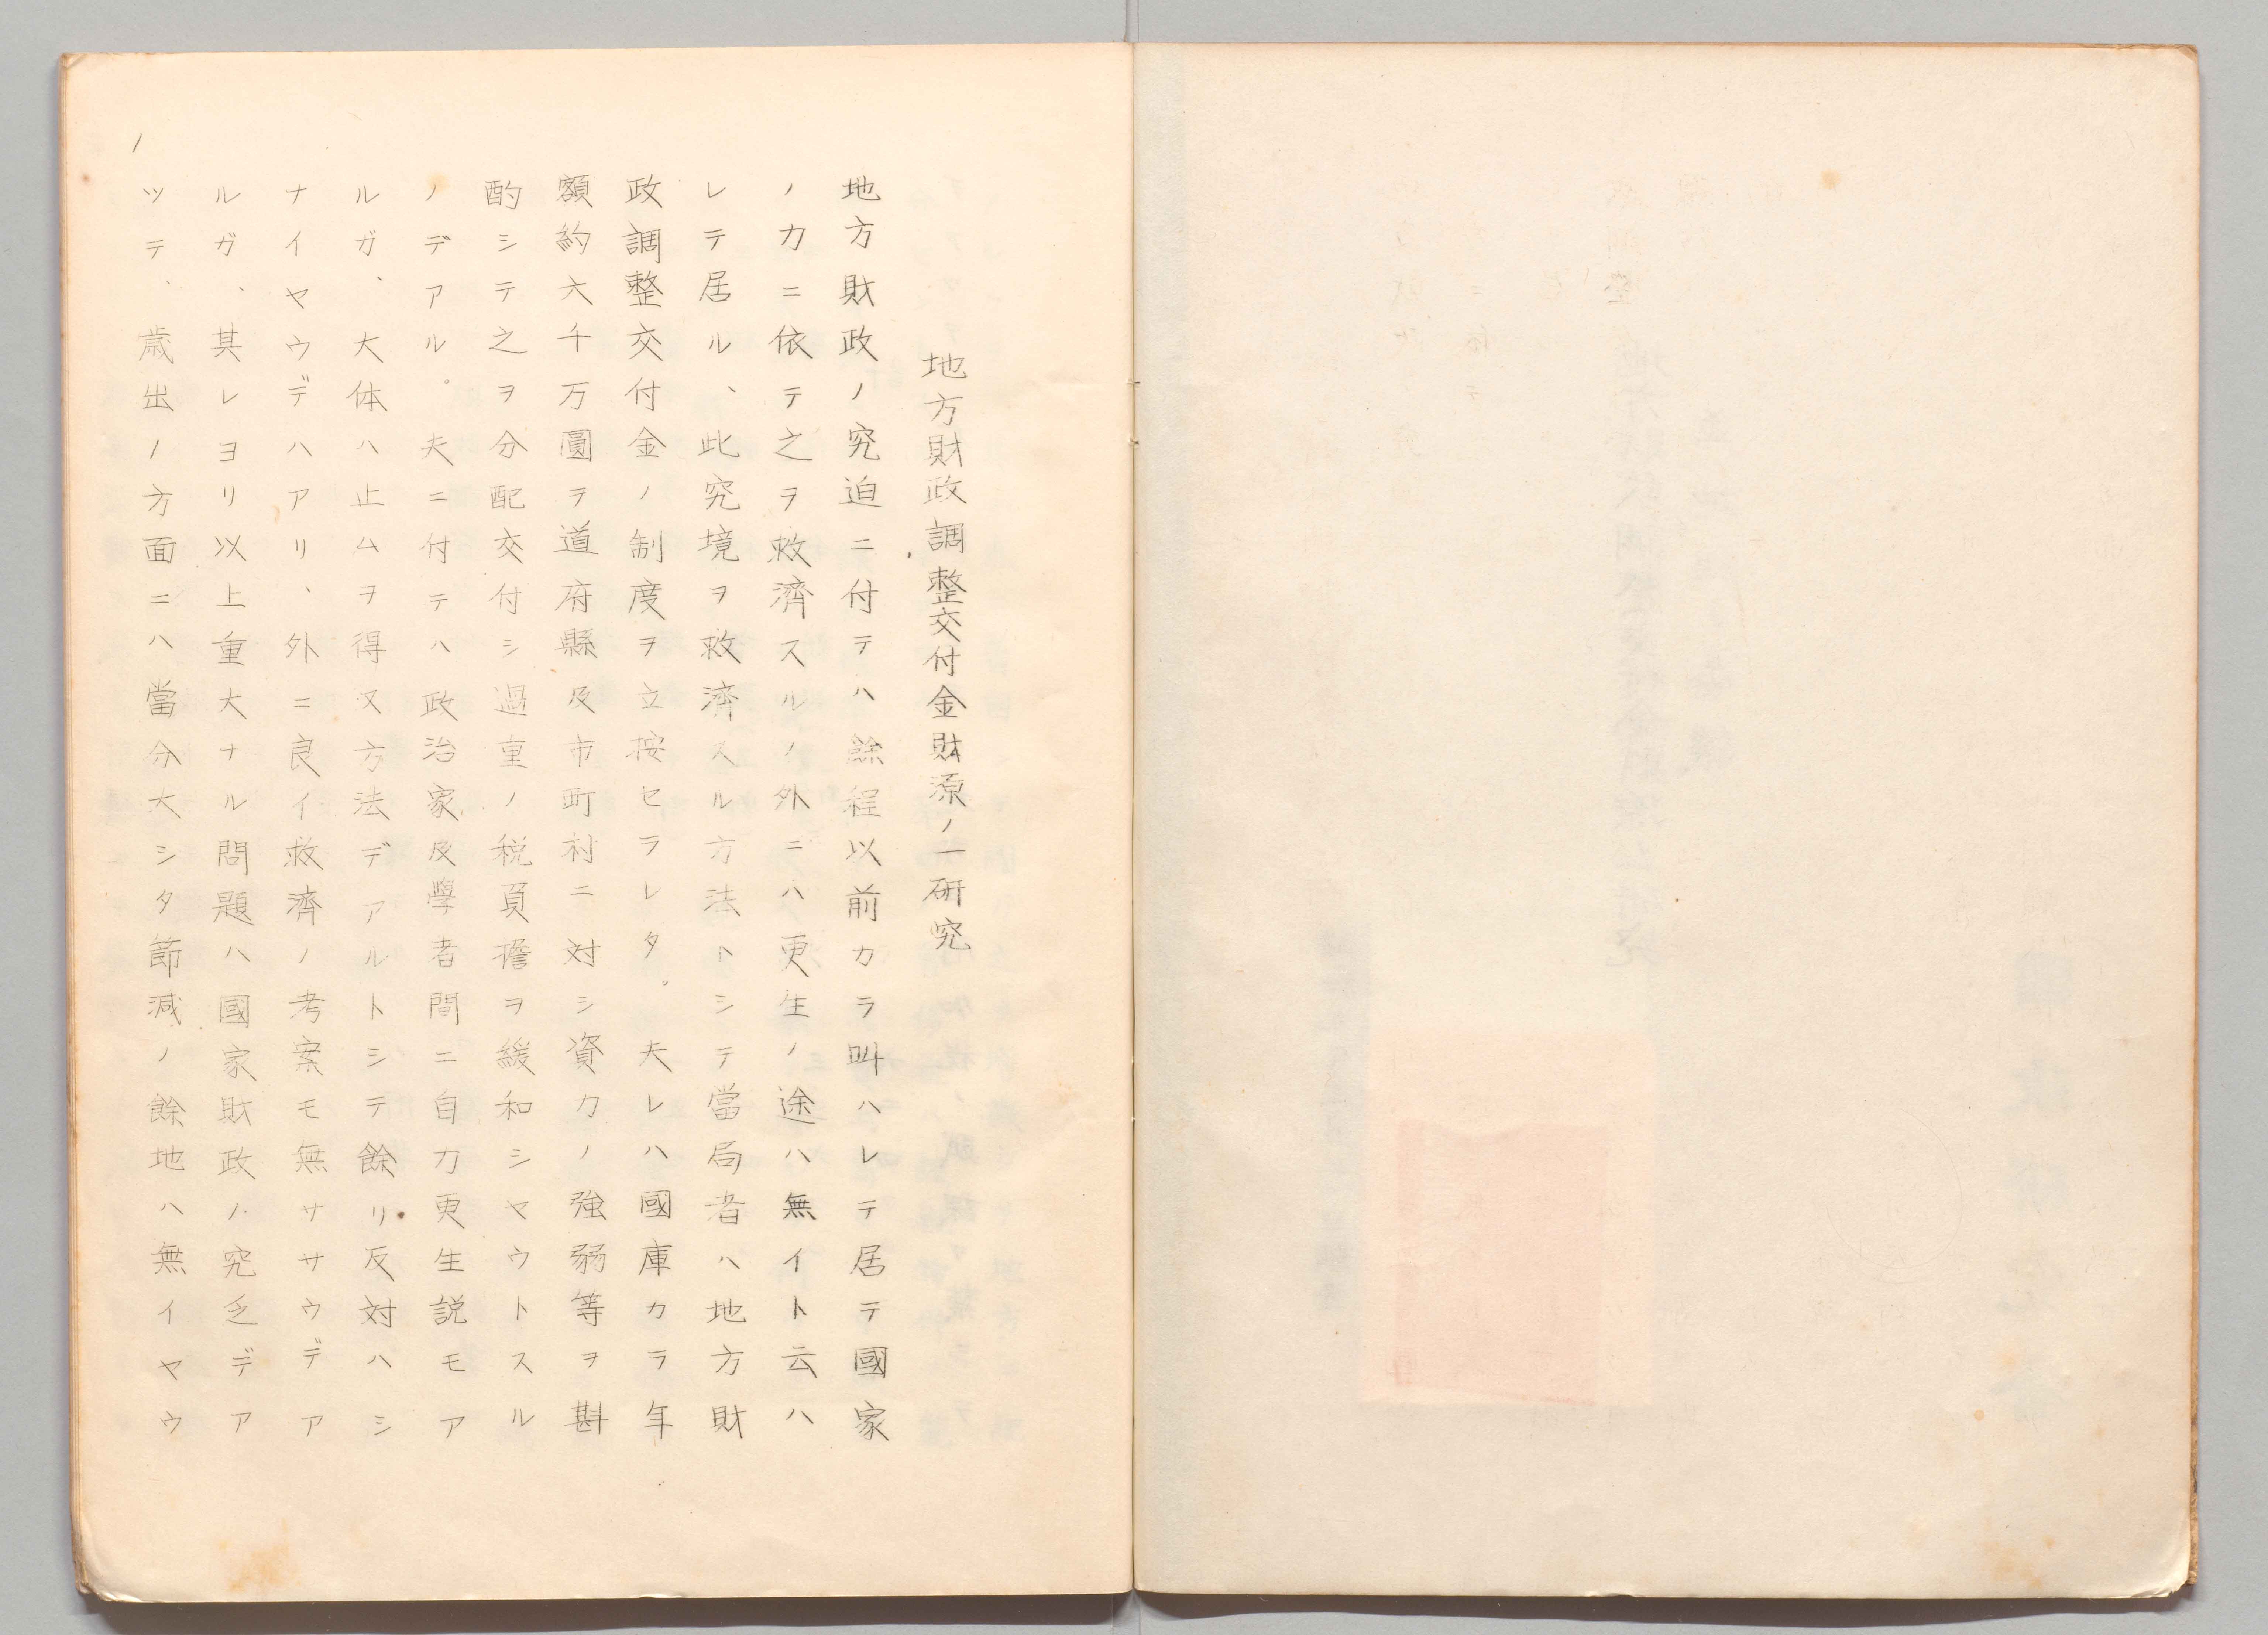 地方財政調整交付金財源ノ一研究
地方財政ノ究迫ニ付テハ餘程以前カラ叫ハレテ居テ國家
ノカニ依テ之ヲ救濟スルノ外ニハ更生ノ途ハ無イト云ハ
レテ居ル、此究境ヲ救濟スル方法トシテ當局者ハ地方財
政調整交付金ノ制度ヲ立按セラレタ。夫レハ國庫カラ年
額約六千万圓ヲ道府縣及市町村ニ対シ資力ノ強弱等ヲ斟
酌シテ之ヲ分配交付シ過重ノ税負擔ヲ緩和シヤウトスル
ノデアル。夫ニ付テハ政治家及學者間ニ自力更生説モア
ルガ、大体ハ止ムヲ得又方法デアルトシテ餘リ反対ハシ
ナイヤウデハアリ、外ニ良イ救濟ノ考案モ無ササウデア
ルガ、其レヨリ以上重大ナル問題ハ國家財政ノ究乏デア
ツテ、歳出ノ方面ニハ當分大シタ節減ノ餘地ハ無イヤウ
1